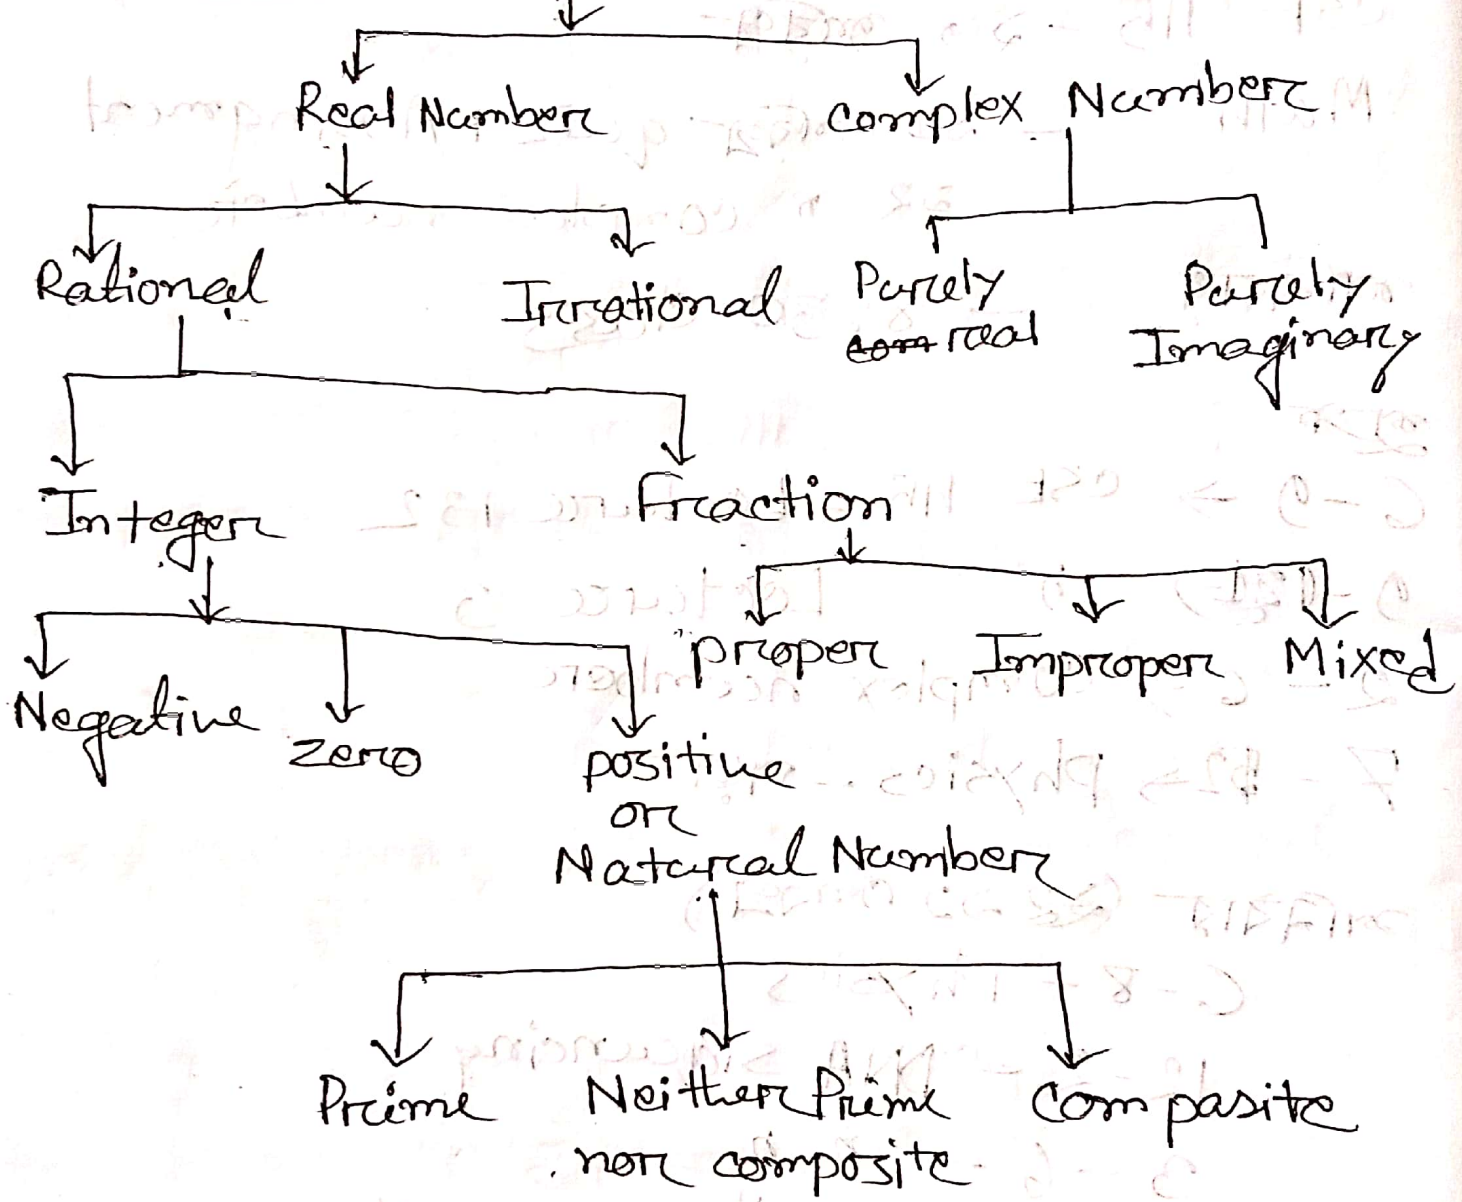 Real Number
Complex Number
Rational
Irrational
Purely
real
Purely
Imaginary
Integer
Fraction
Negative
Zero
positive
or
Natural Number
proper
Improper
Mixed
Prime
Neither Prime
nor composite
Compasite